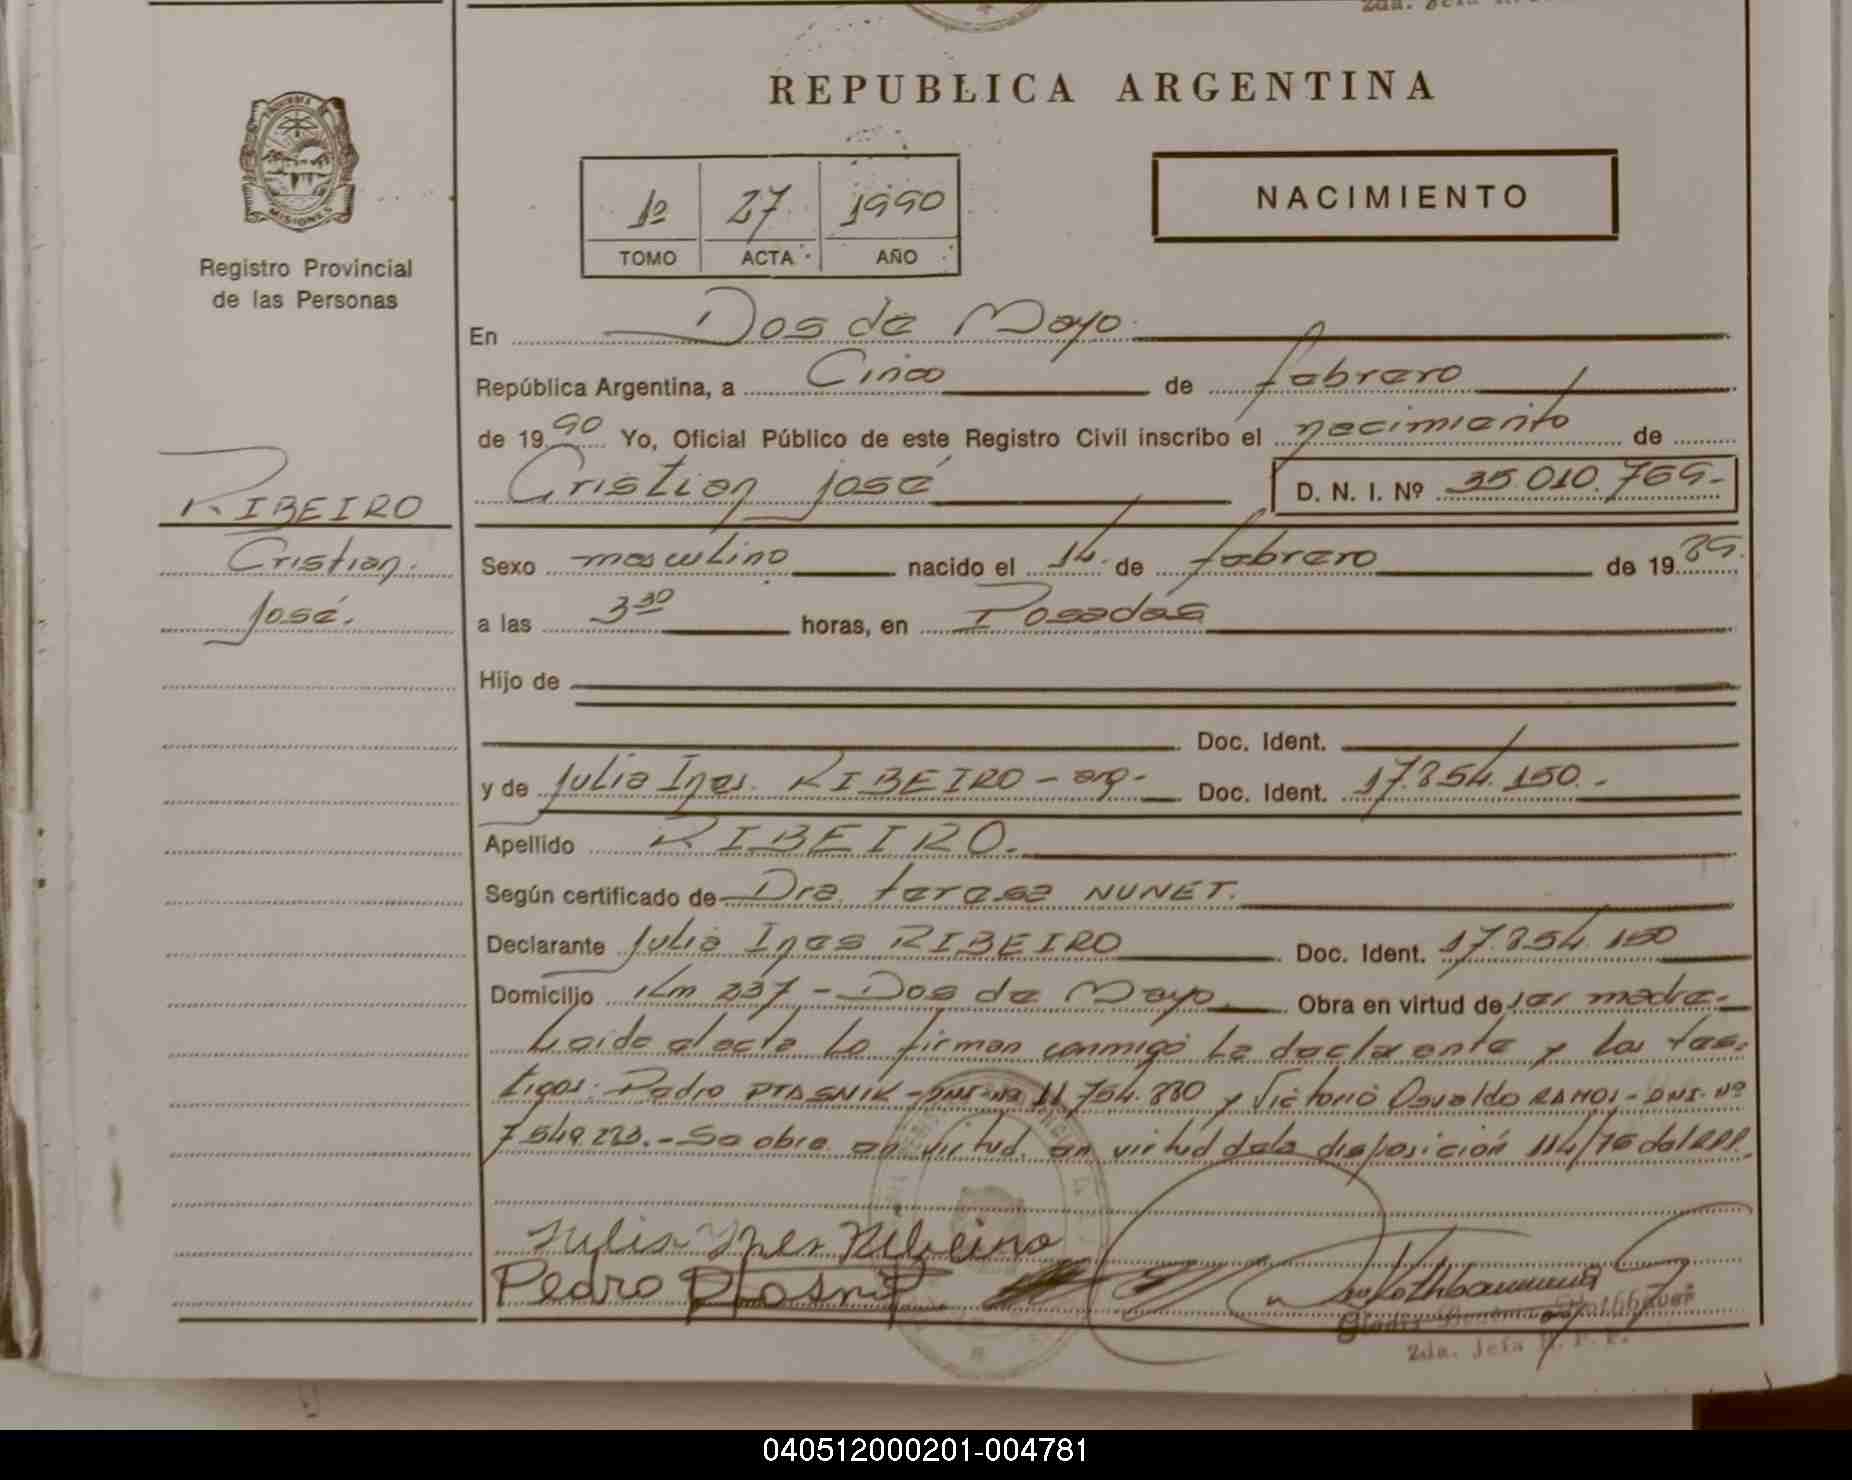 REPUBLICA ARGENTINA
MISIONES
Registro Provincial
de las Personas
1º 27 1990
TOMO ACTA AÑO
NACIMIENTO
En Dos de Mayo
República Argentina, a Cinco de febrero
de 1990 Yo, Oficial Público de este Registro Civil inscribo el nacimiento de
Cristian José D. N. I. Nº 35.010.769-
RIBEIRO
Cristian.
José.
Sexo masculino nacido el 14 de febrero de 1989.
a las 3 30 horas, en Posadas
Hijo de
Doc. Ident.
y de Julia Ines. RIBEIRO - arg- Doc. Ident. 17.854.150.-
Apellido RIBEIRO.
Según certificado de Dra. teresa NUNET.
Declarante Julia Ines RIBEIRO Doc. Ident. 17.854.150
Domicilio Km 237 - Dos de Mayo. Obra en virtud de ser madre.
Leída el acta la firman conmigo la declarente y los tes-
tigos: Pedro PTASNIK - DNI-Nº 11.754.880 y Victorio Osvaldo RAMOS - DNI. Nº
7.549.223.- Se obra en virtud. en virtud dela disposición 114/76 del RPP.
Julia Ynes Ribeiro
Pedro Ptasnik
2da. Jefa R. P. P.
040512000201-004781